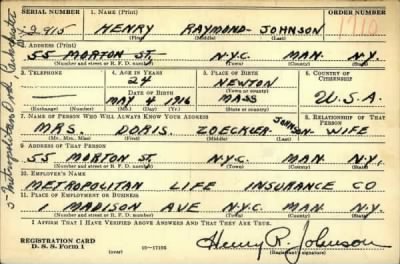 SERIAL NUMBER 1. NAME (Print) ORDER NUMBER
2915 HENRY RAYMOND JOHNSON 1710
(First) (Middle) (Last)
2. ADDRESS (Print)
55 MORTON ST. N.Y.C. MAN. N.Y.
(Number and street or R. F. D. number) (Town) (County) (State)
3. TELEPHONE 4. AGE IN YEARS 5. PLACE OF BIRTH 6. COUNTRY OF CITIZENSHIP
24 NEWTON
DATE OF BIRTH (Town or county)
MAY 4 1916 MASS U.S.A.
(Exchange) (Number) (Mo.) (Day) (Yr.) (State or country)
7. NAME OF PERSON WHO WILL ALWAYS KNOW YOUR ADDRESS 8. RELATIONSHIP OF THAT PERSON
MRS. DORIS. ZOECKLER JOHNSON WIFE
(Mr., Mrs., Miss) (First) (Middle) (Last)
9. ADDRESS OF THAT PERSON
55 MORTON ST. N.Y.C. MAN. N.Y.
(Number and street or R. F. D. number) (Town) (County) (State)
10. EMPLOYER'S NAME
METROPOLITAN LIFE INSURANCE CO
11. PLACE OF EMPLOYMENT OR BUSINESS
1 MADISON AVE N.Y.C. MAN N.Y.
(Number and street or R. F. D. number) (Town) (County) (State)
I AFFIRM THAT I HAVE VERIFIED ABOVE ANSWERS AND THAT THEY ARE TRUE.
REGISTRATION CARD
D. S. S. Form 1 (over) 16—17105
Henry R. Johnson
(Registrant's signature)